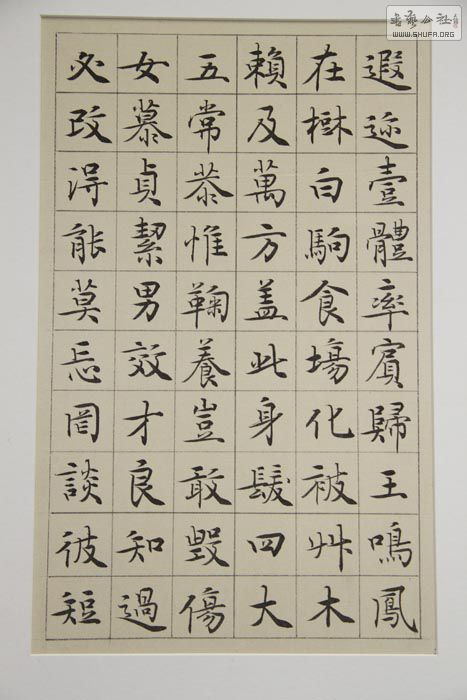 遐迩壹體率賓歸王鳴鳳
在樹白駒食塲化被艸木
賴及萬方盖此身髮四大
五常恭惟鞠養豈敢毀傷
女慕貞絜男效才良知過
必改得能莫忘罔談彼短
書藝公社
WWW.SHUFA.ORG